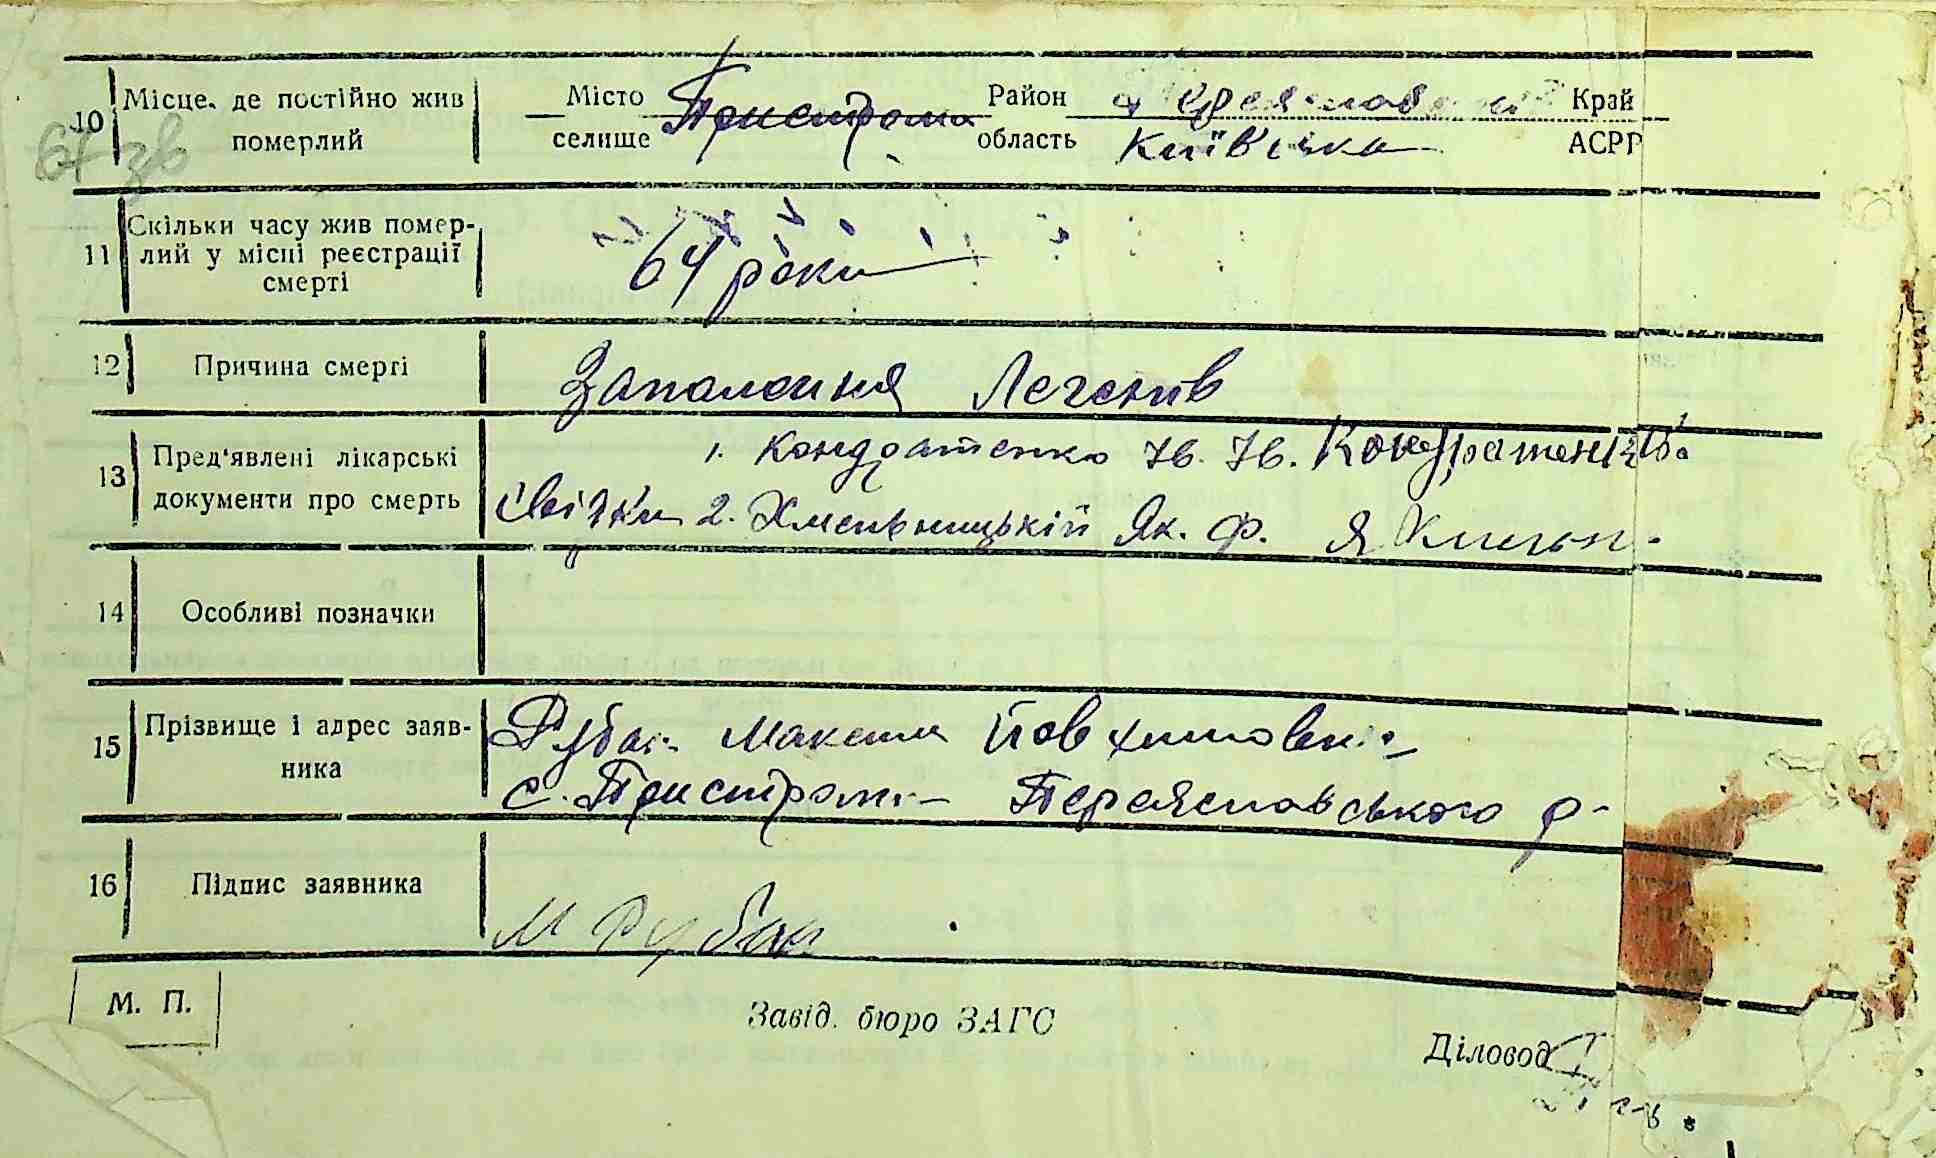 10 Місце, де постійно жив Місто Пристроми Район Переяславський Край
померлий селище область Київська АСРР
11 Скільки часу жив помер-
лий у місці реєстрації
смерті
64 роки
12 Причина смерті Запалення Легенів
13 Пред'явлені лікарські 1. Кондратенко Ів. Ів. Кондратенко
документи про смерть Свідки 2. Хмельницькій Як. Ф. Я
14 Особливі позначки
15 Прізвище і адрес заяв- Рубан Максим Йовхимович
ника с. Пристроми Переяславського р-
16 Підпис заявника М Рубан
М. П.
Завід. бюро ЗАГС
Діловод